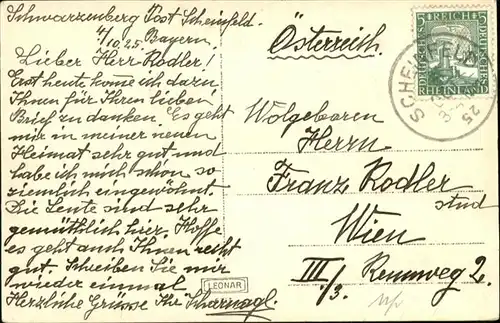 Schwarzenberg Post Scheinfeld.
4/10.25. Bayern
Lieber Herr Rodler!
Erst heute komme ich dazu
Ihnen für Ihren lieben
Brief zu danken. Es geht
mir in meiner neuen
Heimat sehr gut und
habe ich mich schon so
ziemlich eingewöhnt.
Die Leute sind sehr
gemüthlich hier. Hoffe
es geht auch Ihnen recht
gut. Schreiben Sie mir
wieder einmal
Herzliche Grüsse Ihr Scharnagl.
LEONAR
Österreich.
5 REICH 5
DEUTSCHES
RHEINLAND
SCHEINFELD
25
Wolgeboren
Herrn
Franz Rodler
stud
Wien
III/3. Rennweg 2.